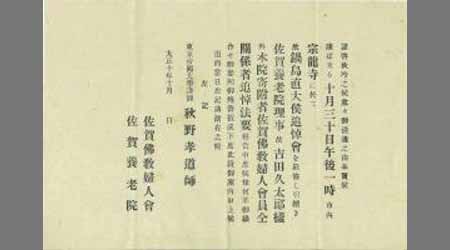 謹啓秋冷之候愈々御清適之由奉賀候
陳ば來る十月三十日午後一時市內
宗龍寺に於て
故鍋島直大侯追悼會を嚴修し引續き
佐賀養老院理事故古田久太郎樣
外本院寄附者佐賀佛敎婦人會員全
關係者追悼法要
左記
東京帝國大學講師 秋野孝道師
大正十年十月 日
佐賀佛敎婦人會
佐賀養老院